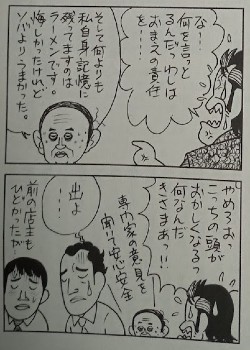 な…
何を言っと
るんだっわしは
おまえの責任
を…
そして何よりも
私自身記憶に
残ってますのは
ラーメンです。
悔しかったけれど
ソバよりうまかった。
やめろおっ
こっちの頭が
おかしくなるっ
何なんだ
きさまあっ!!
専門家の意見を
聞いて安心安全
出よ
…
前の店主も
ひどかったが